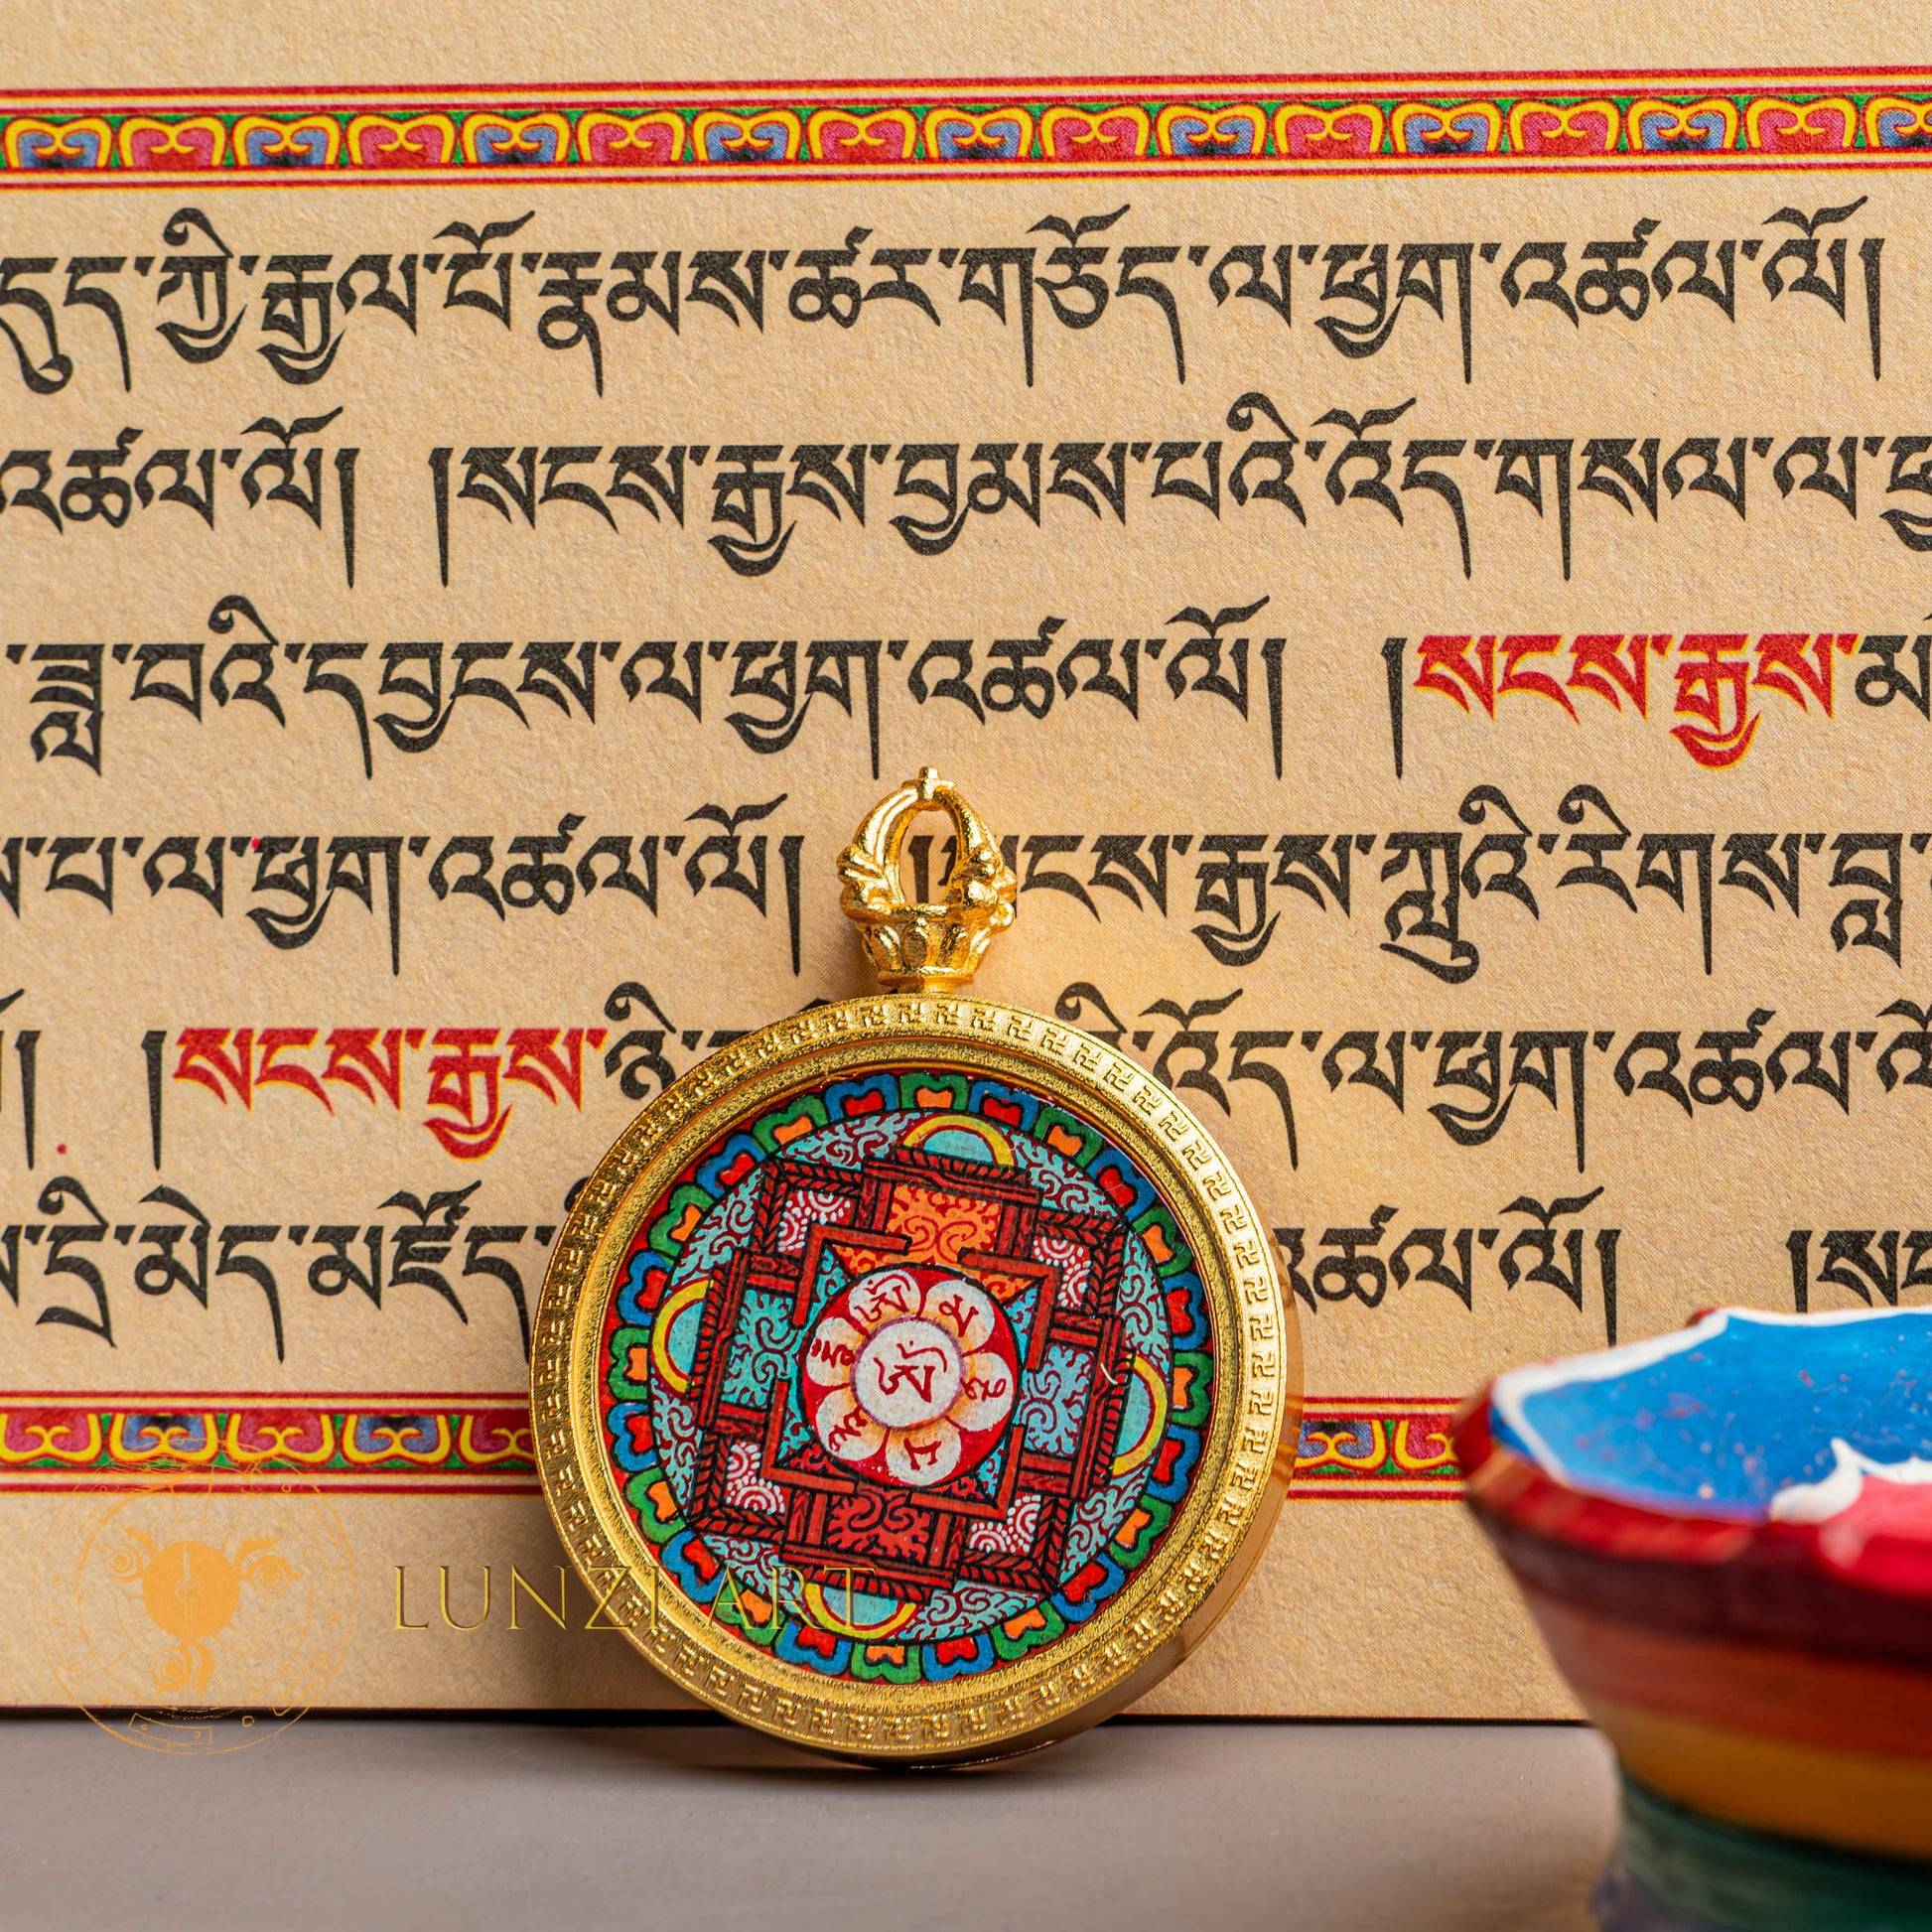 དུད་ཀྱི་རྒྱལ་པོ་རྣམས་ཚར་གཅོད་ལ་ཕྱག་འཚལ་ལོ།
འཚལ་ལོ། །སངས་རྒྱས་བྱམས་པའི་འོད་གསལ་ལ་
བླ་བའི་དབྱངས་ལ་ཕྱག་འཚལ་ལོ། །སངས་རྒྱས་
པ་ལ་ཕྱག་འཚལ་ལོ། །སངས་རྒྱས་ཀླུའི་རིགས་བླ
།སངས་རྒྱས་ འོད་ལ་ཕྱག་འཚལ་ལོ
དྲི་མེད་མཛོད་ འཚལ་ལོ།
LUNZI ART